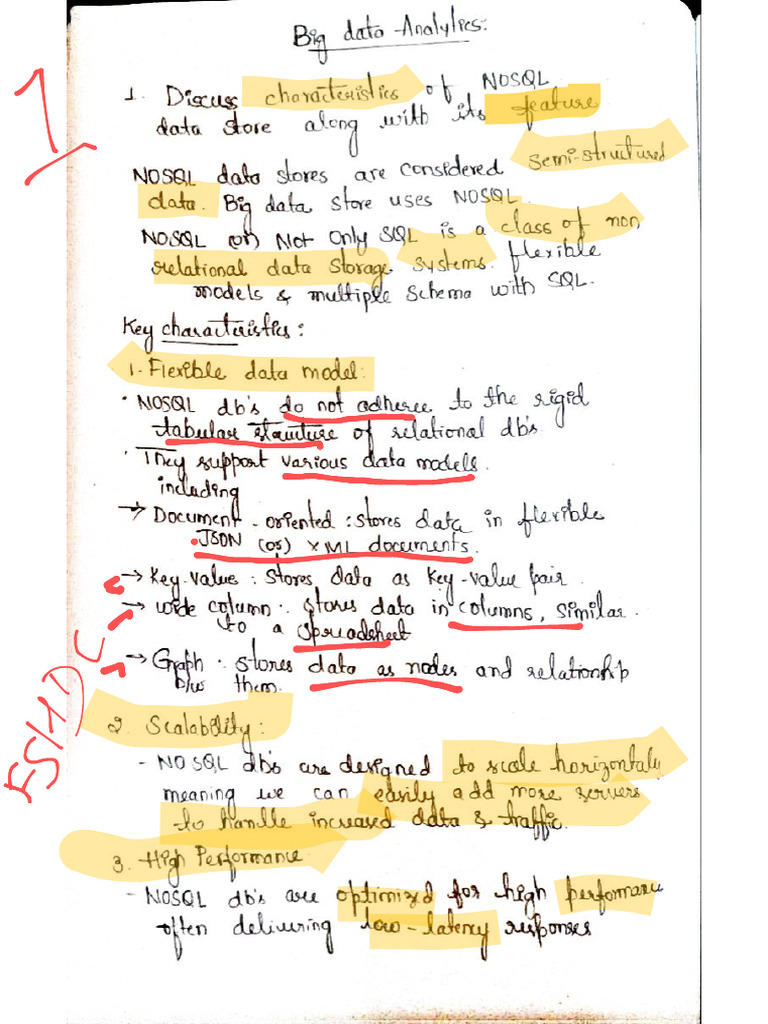 Big data Analytics:
1
1. Discuss characteristics of NOSQL
data store along with its feature
NOSQL data stores are considered semi-structured
data. Big data store uses NOSQL.
NOSQL (or) Not Only SQL is a class of non
relational data storage systems. flexible
models & multiple schema with SQL.
Key characteristics:
1. Flexible data model:
• NOSQL db's do not adhere to the rigid
tabular structure of relational db's.
• They support various data models.
including
→ Document-oriented: stores data in flexible
JSON (or) XML documents.
→ Key-value: stores data as key-value pair.
→ wide column: stores data in columns, similar
to a spreadsheet
→ Graph: stores data as nodes and relationship
b/w them.
FSHDC
2. Scalability:
- NOSQL db's are designed to scale horizontaly
meaning we can easily add more servers
to handle increased data & traffic.
3. High Performance
- NOSQL db's are optimized for high performance
often delivering low-latency responses